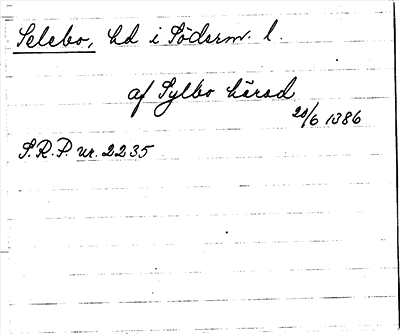 Selebo, hd i Söderm. l.
af Sylbo hærad
20/6 1386
S.R.P. nr. 2235